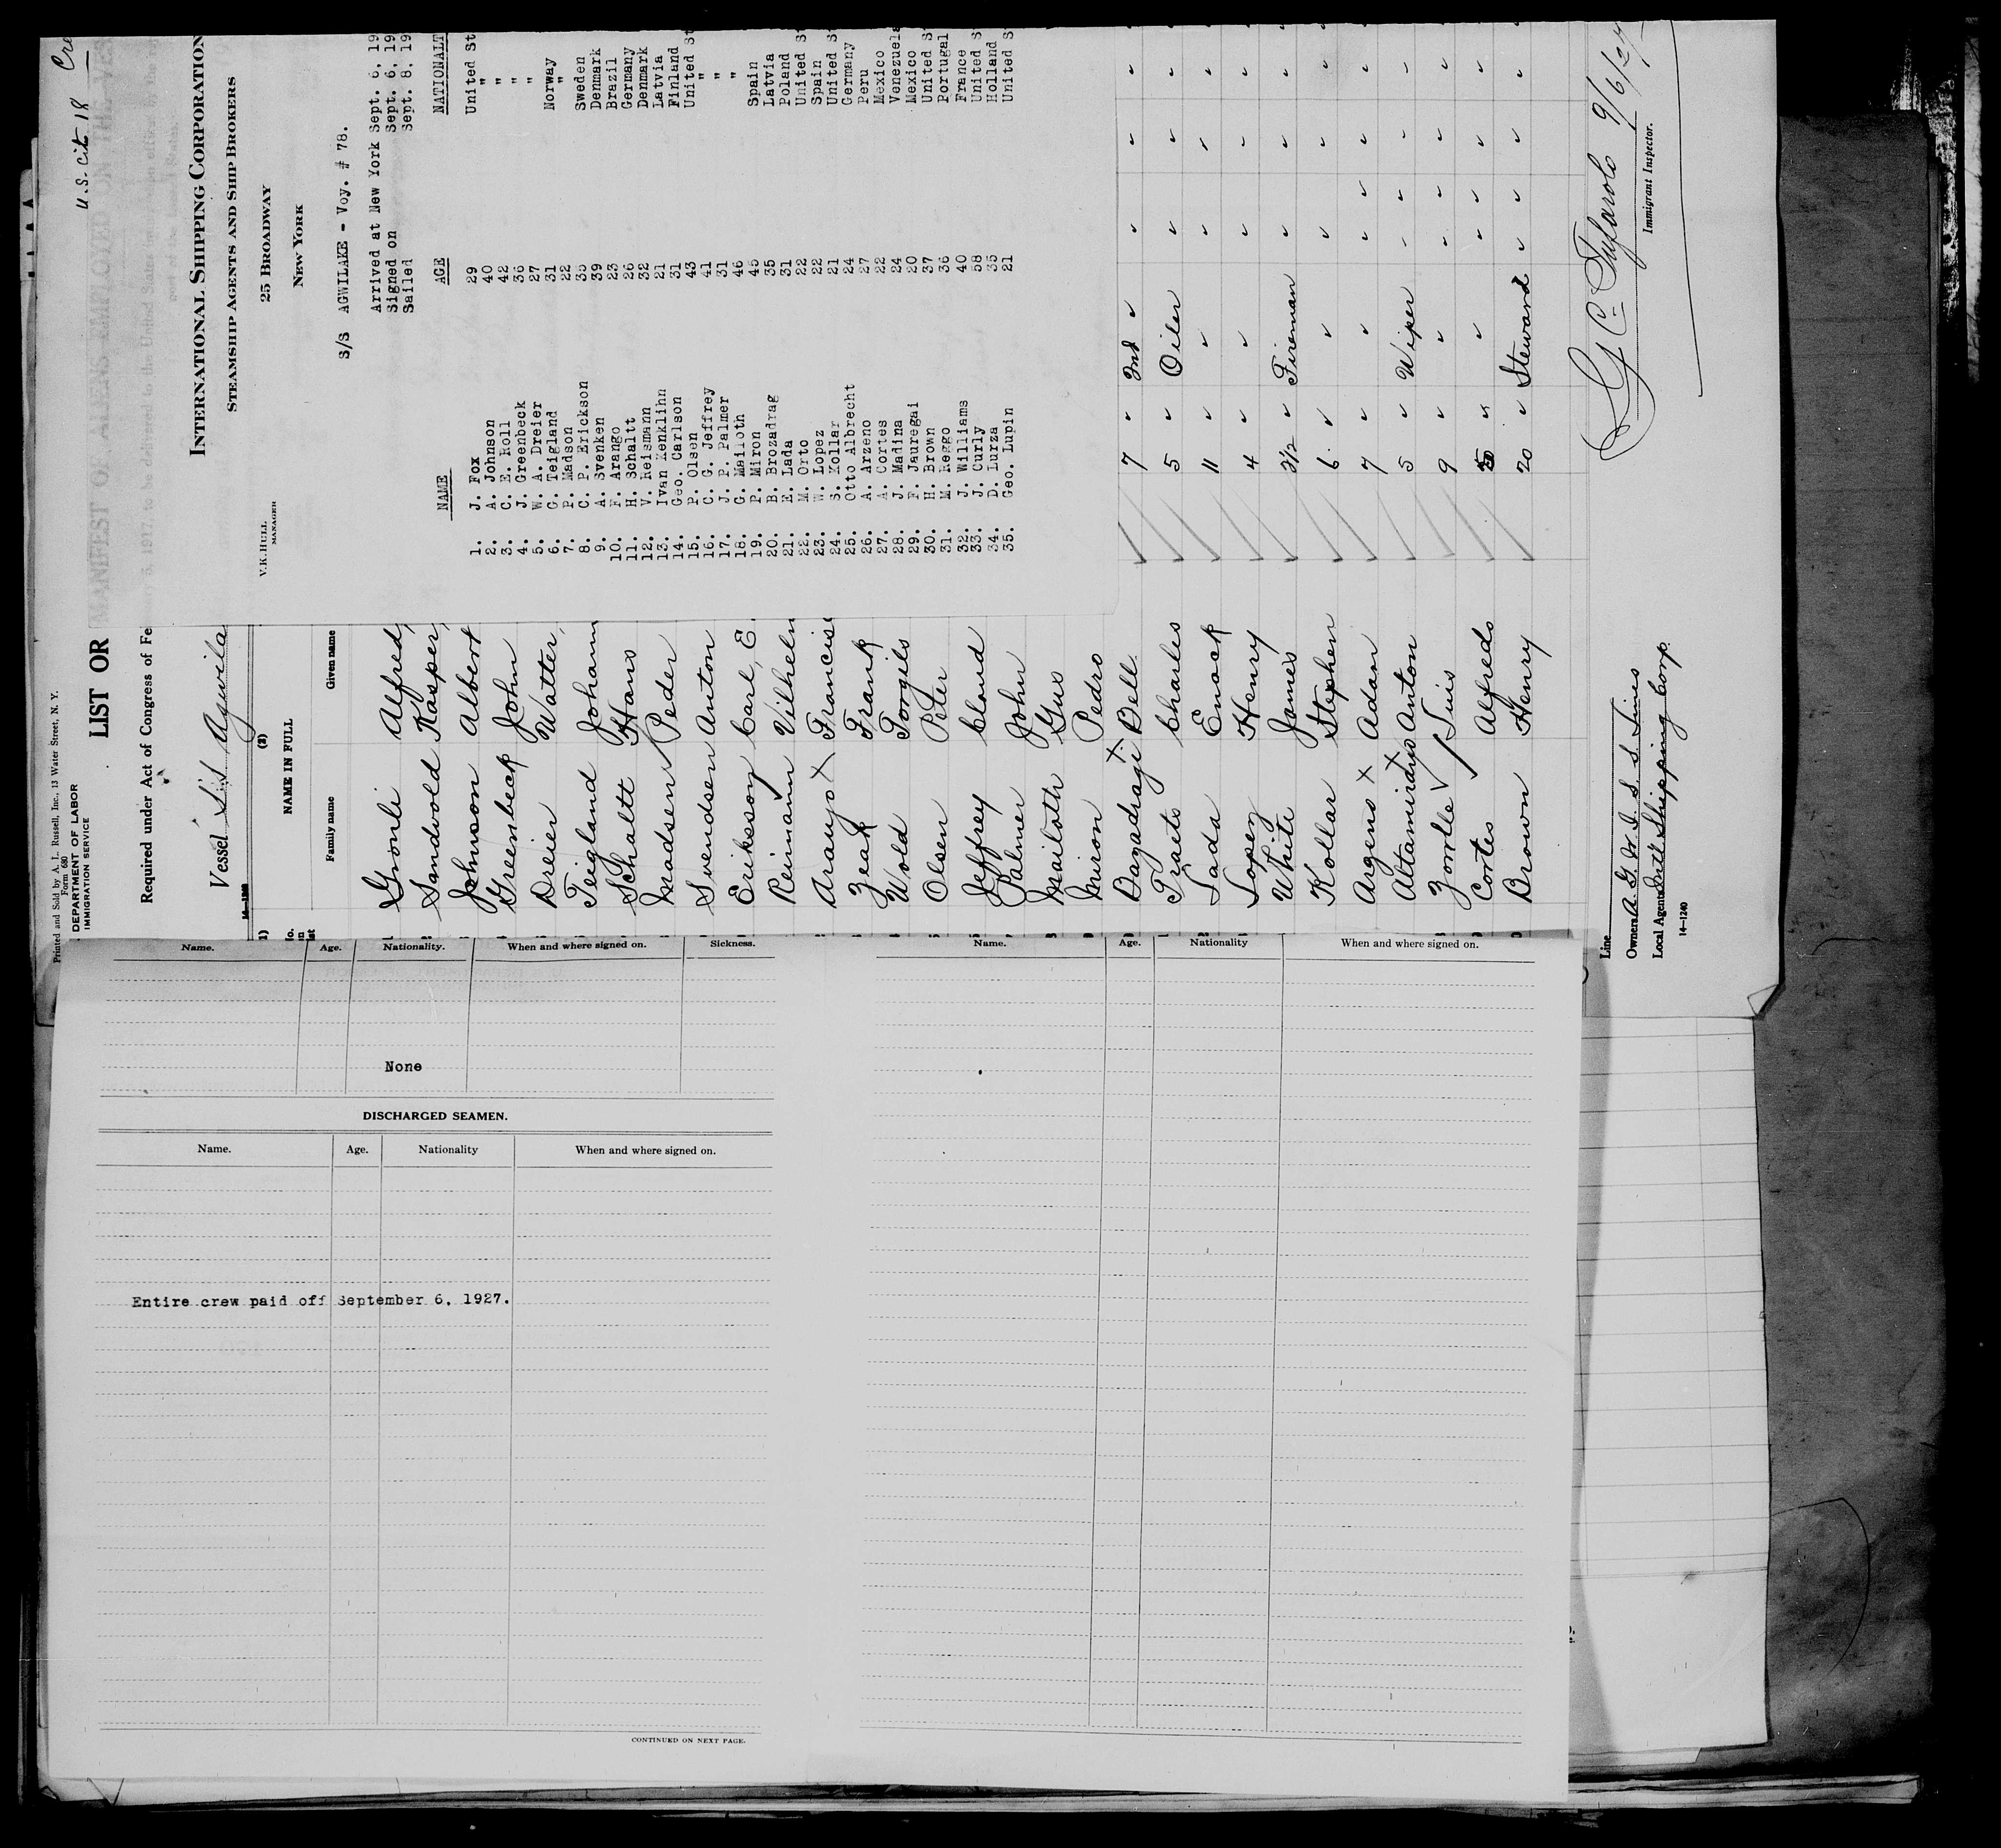 U.S. cit 18 Cre
INTERNATIONAL SHIPPING CORPORATION
STEAMSHIP AGENTS AND SHIP BROKERS
25 BROADWAY
NEW YORK
V.K. HULL
MANAGER
S/S AGWILAKE - Voy. # 78.
Arrived at New York Sept. 6, 19
Signed on Sept. 6, 19
Sailed Sept. 8, 19
NAME AGE NATIONALT
1. J. Fox 29 United St
2. A. Johnson 40 "
3. C. E. Roll 42 "
4. J. Greenbeck 36 "
5. W. A. Dreier 27 "
6. G. Teigland 31 Norway
7. P. Madson 22 "
8. C. P. Erickson 35 Sweden
9. A. Svenken 39 Denmark
10. F. Arango 23 Brazil
11. H. Schaltt 26 Germany
12. V. Reismann 32 Denmark
13. Ivan Kenklihn 21 Latvia
14. Geo. Carlson 31 Finland
15. P. Olsen 43 United St
16. C. G. Jeffrey 41 "
17. J. P. Palmer 31 "
18. G. Mailoth 46 "
19. P. Miron 45 Spain
20. B. Brozadrag 35 Latvia
21. E. Lada 31 Poland
22. M. Orto 22 United St
23. W. Lopez 22 Spain
24. S. Kollar 21 United St
25. Otto Albrecht 24 Germany
26. A. Arzeno 27 Peru
27. A. Cortes 22 Mexico
28. J. Madina 24 Venezuela
29. F. Jauregai 20 Mexico
30. H. Brown 37 United St
31. M. Reggo 36 Portugal
32. J. Williams 40 France
33. J. Curly 58 United S
34. D. Lurza 35 Holland
35. Geo. Lupin 21 United S
Printed and Sold by A. L. Russell, Inc., 13 Water Street, N. Y.
Form 680
DEPARTMENT OF LABOR
IMMIGRATION SERVICE
LIST OR
Required under Act of Congress of Fe
Vessel S/S Agwila
(2)
NAME IN FULL
Family name Given name
Gronli Alfred
Sandvold Kasper
Johnson Albert
Greenbeck John
Dreier Walter
Teigland Johann
Schaltt Hans
Madsen Peder
Svendsen Anton
Eriksson Carl, E.
Reimann Vilhelm
Araujo X Francisc
Zeak Frank
Wold Torgils
Olsen Peter
Jeffrey Claud
Palmer John
Mailoth Gus
Miron Pedro
Bazadragi X Bell 7 3rd
Traets Charles 5 Oiler
Lada Enock 11
Lopez Henry 4
White James 3½ Fireman
Kollar Stephen 6
Argens X Adan 7
Altamirano X Anton 5 Wiper
Zorrlle Luis 9
Cortes Alfredo
Brown Henry 20 Steward
Line
Owners A. G. W. I. S. S. Lines
Local Agents Int'l Shipping Corp.
14—1240
G C Tufarolo 9/6/27
Immigrant Inspector.
Name. Age. Nationality. When and where signed on. Sickness.
None
DISCHARGED SEAMEN.
Name. Age. Nationality When and where signed on.
Entire crew paid off September 6, 1927.
CONTINUED ON NEXT PAGE.
Name. Age. Nationality When and where signed on.